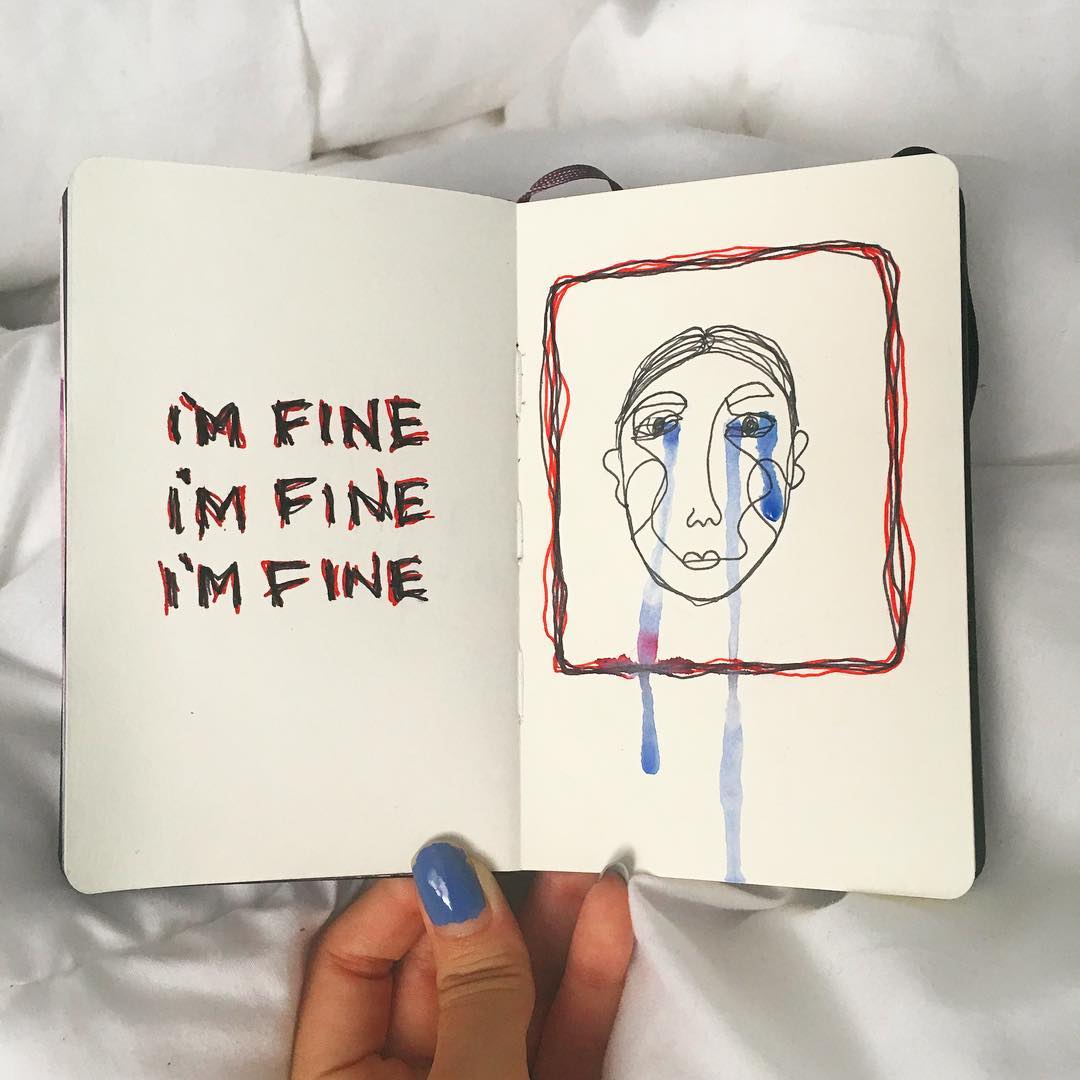 I'M FINE
I'M FINE
I'M FINE